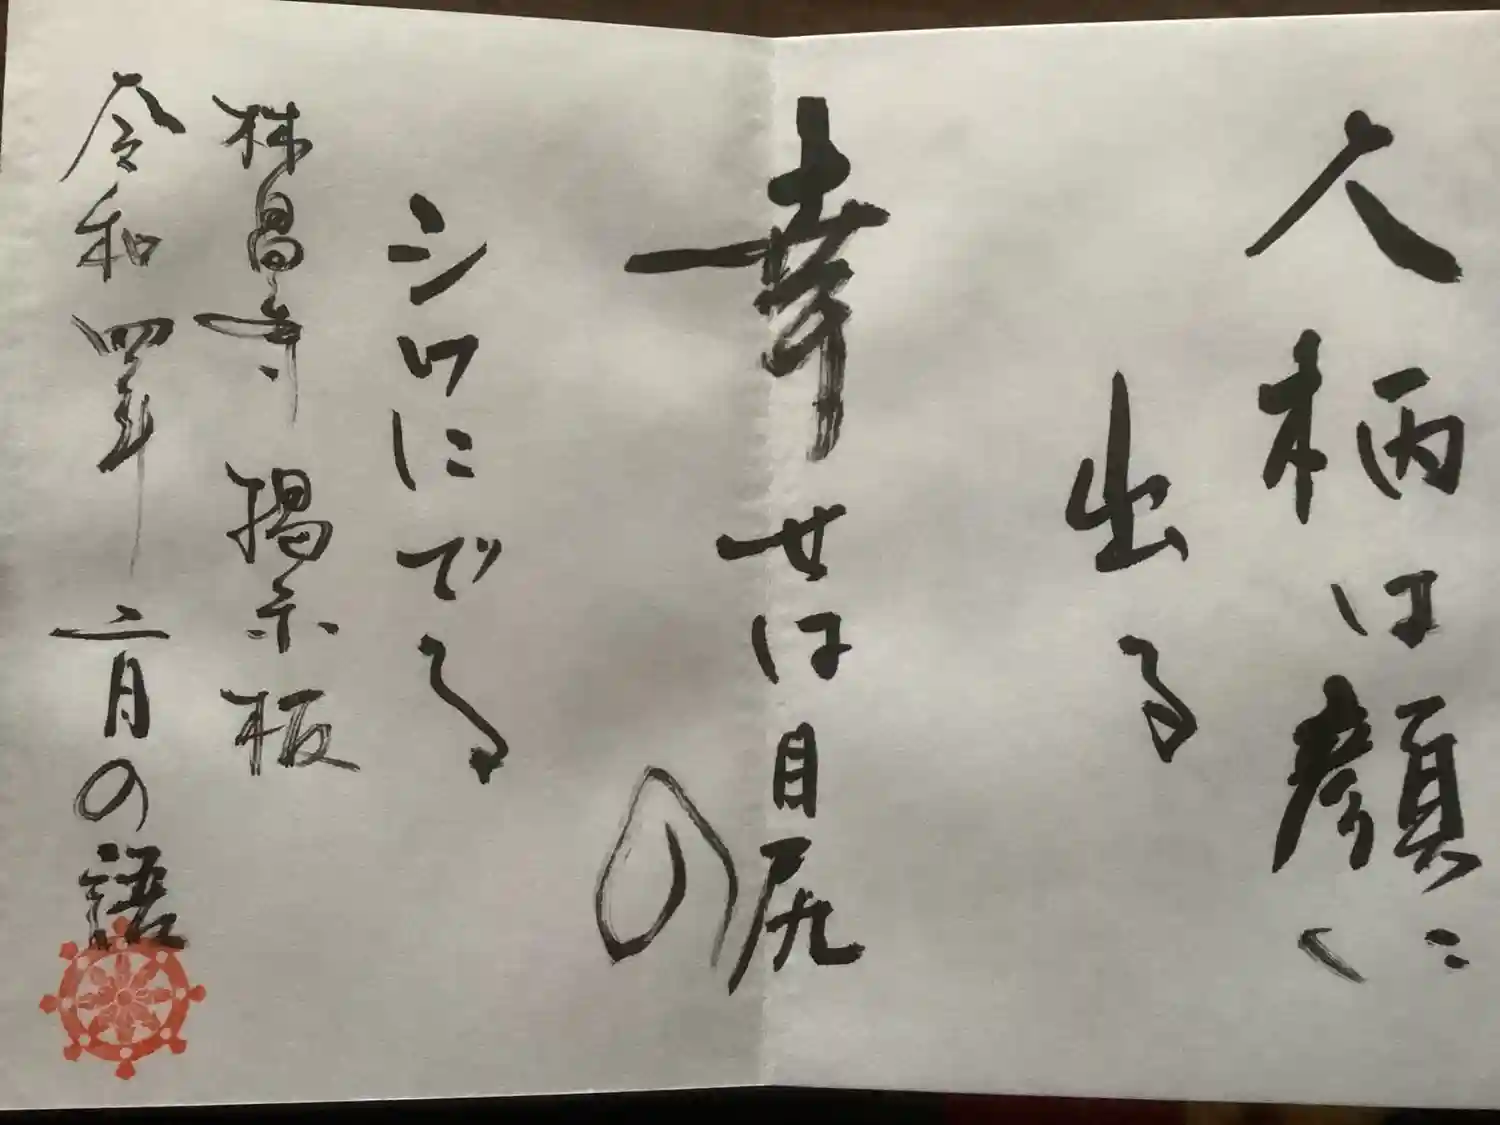 人柄は顔に
出る
幸せは目尻の
シワにでる
株昌寺 掲示板
令和四年 二月の語